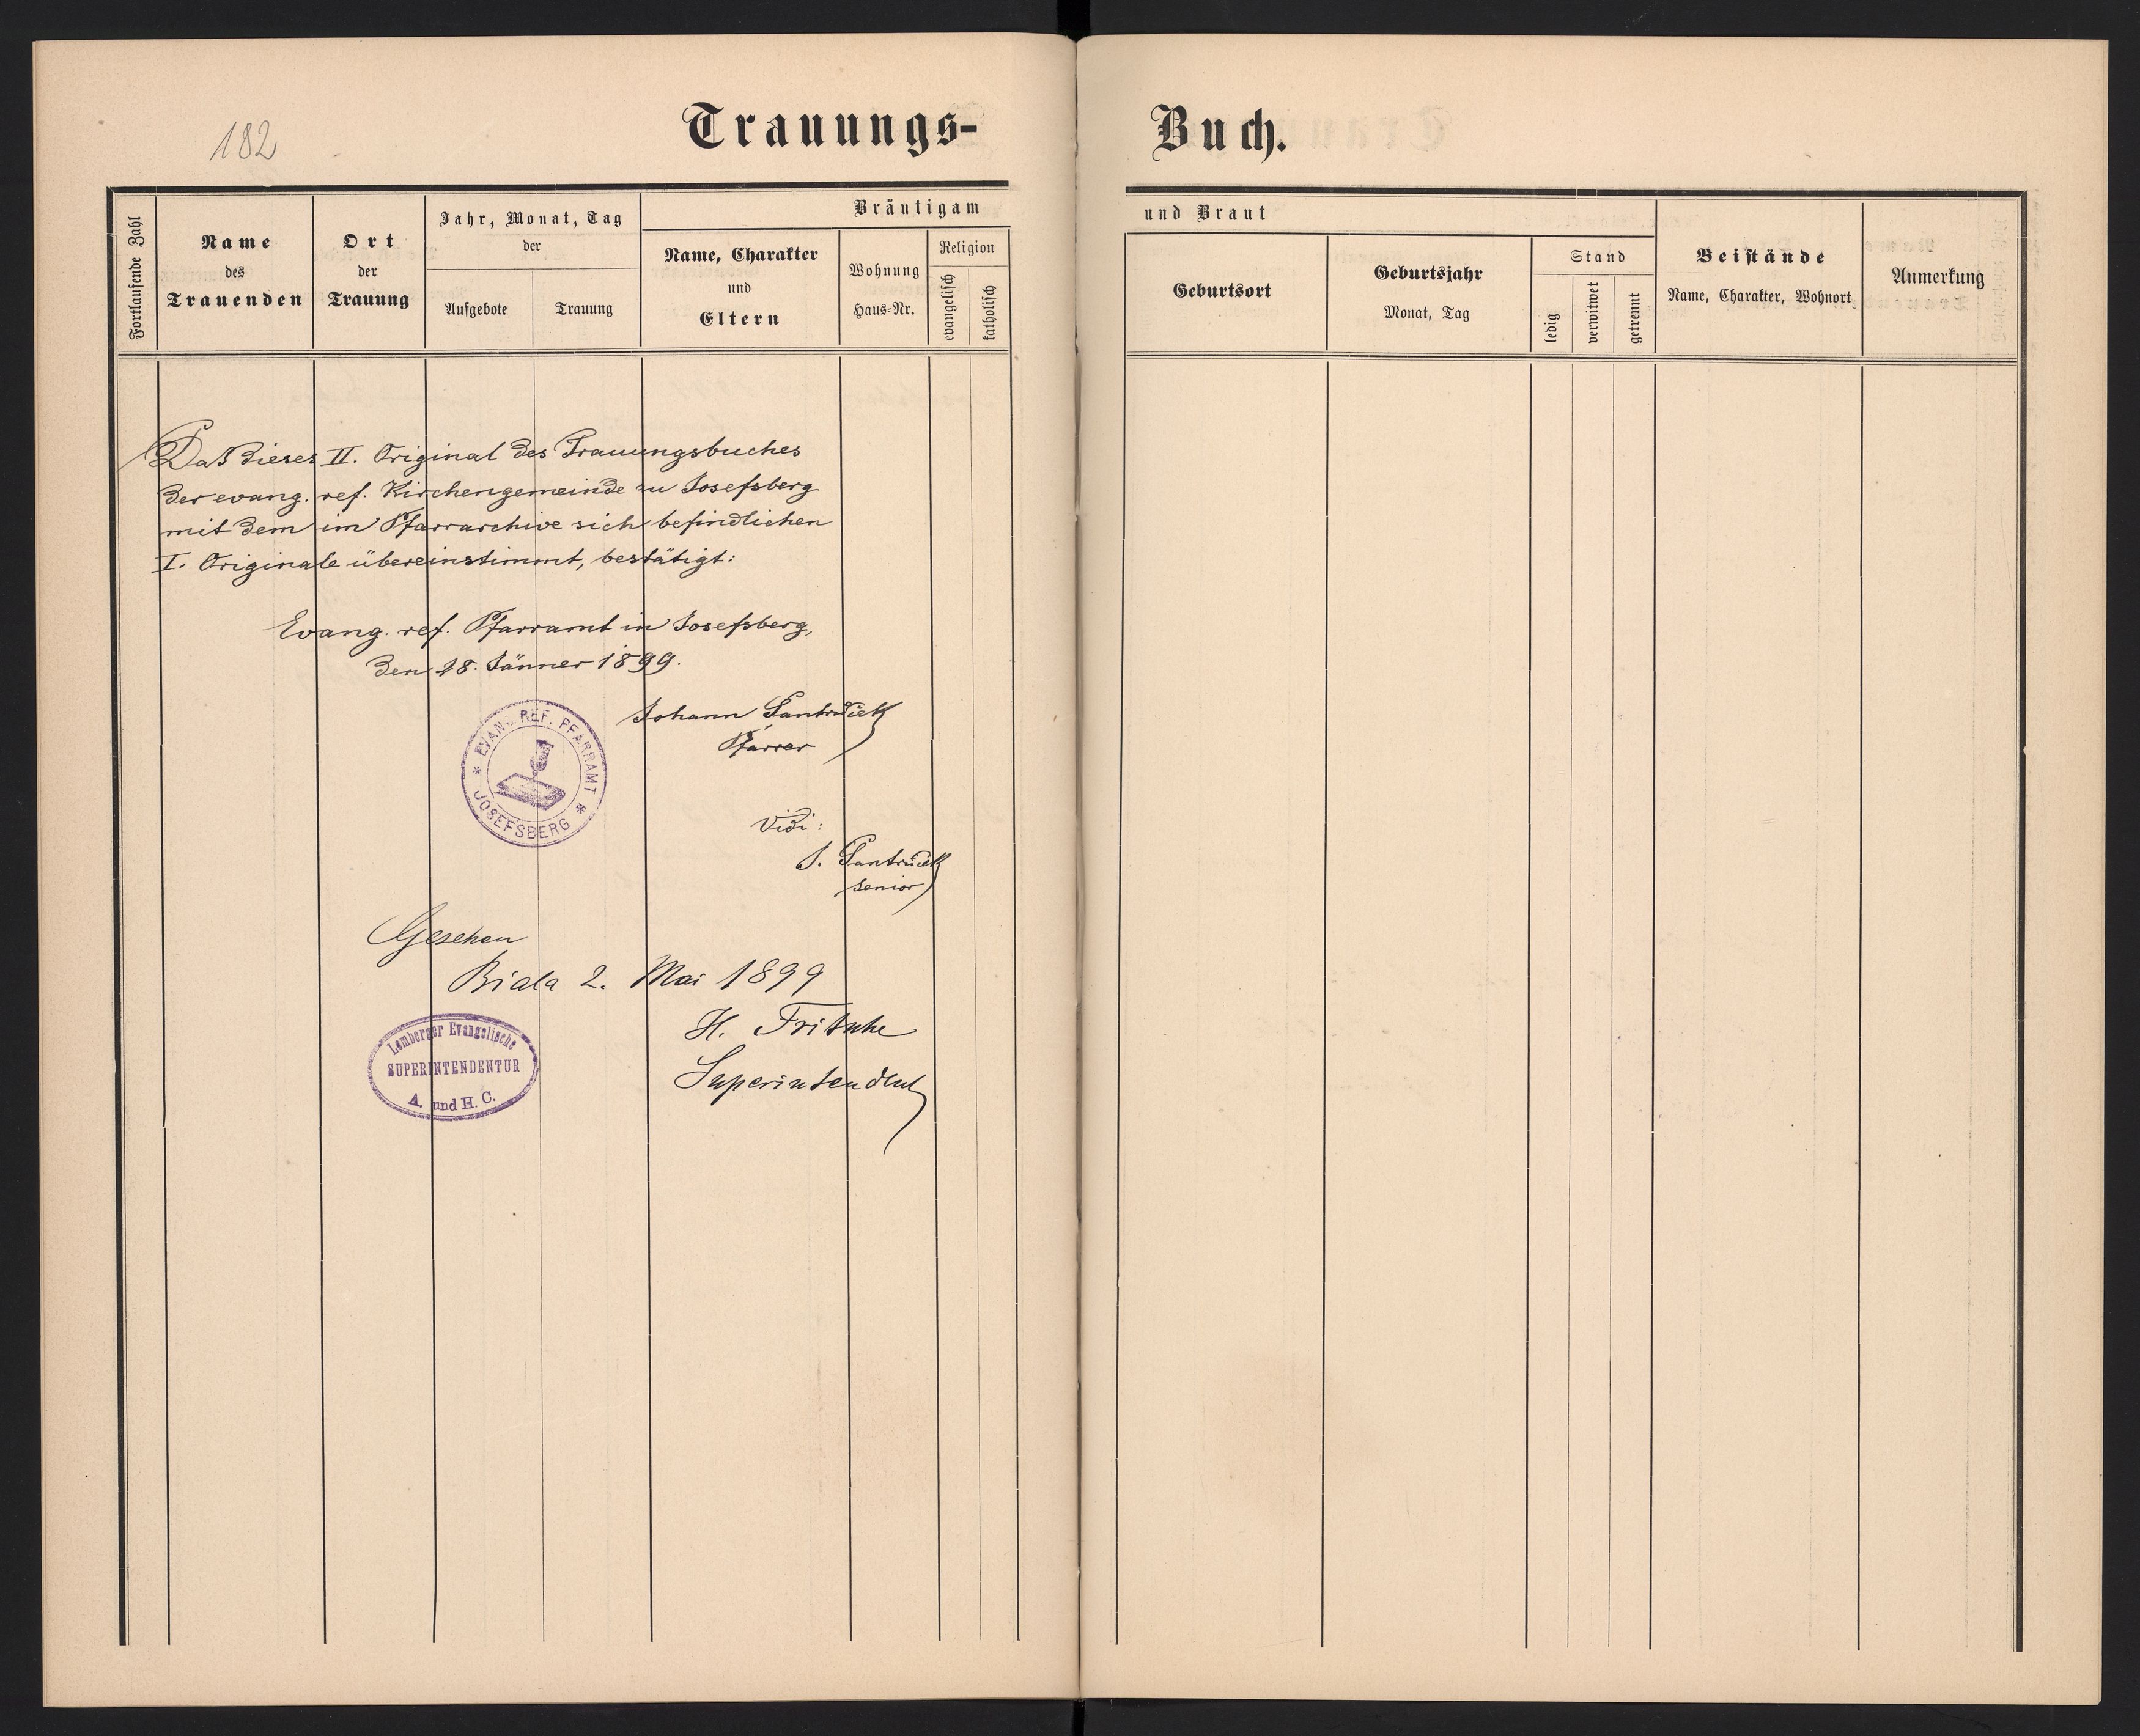 182
Trauungs-
Buch.
Fortlaufende Zahl
Name
des
Trauenden
Ort
der
Trauung
Jahr, Monat, Tag
der
Aufgebote
Trauung
Bräutigam
Name, Charakter
und
Eltern
Wohnung
Haus-Nr.
Religion
evangelisch
katholisch
und Braut
Geburtsort
Geburtsjahr
Monat, Tag
Stand
ledig
verwitwet
getrennt
Beistände
Name, Charakter, Wohnort
Anmerkung
Daß dieses II. Original des Trauungsbuches
der evang. ref. Kirchengemeinde zu Josefsberg
mit dem im Pfarrarchive sich befindlichen
I. Originale übereinstimmt, bestätigt:
Evang. ref. Pfarramt in Josefsberg,
den 18. Jänner 1899.
Johann
Pfarrer
EVANG. REF. PFARRAMT
JOSEFSBERG
Vidi:
J.
Senior
Gesehen
Biala 2. Mai 1899
H. Fritsche
Superintendent
Lemberger Evangelische
SUPERINTENDENTUR
A. und H. C.